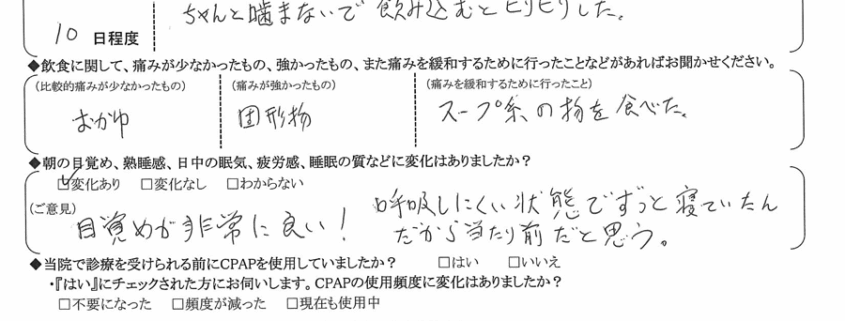 ちゃんと噛まないで飲み込むとヒリヒリした。
10 日程度
◆飲食に関して、痛みが少なかったもの、強かったもの、また痛みを緩和するために行ったことなどがあればお聞かせください。
(比較的痛みが少なかったもの) (痛みが強かったもの) (痛みを緩和するために行ったこと)
おかゆ 固形物 スープ系の物を食べた。
◆朝の目覚め、熟睡感、日中の眠気、疲労感、睡眠の質などに変化はありましたか?
☑変化あり □変化なし □わからない
(ご意見) 呼吸しにくい状態でずっと寝ていたん
目覚めが非常に良い! だから当たり前だと思う。
◆当院で診療を受けられる前にCPAPを使用していましたか? □はい □いいえ
・『はい』にチェックされた方にお伺いします。CPAPの使用頻度に変化はありましたか?
□不要になった □頻度が減った □現在も使用中